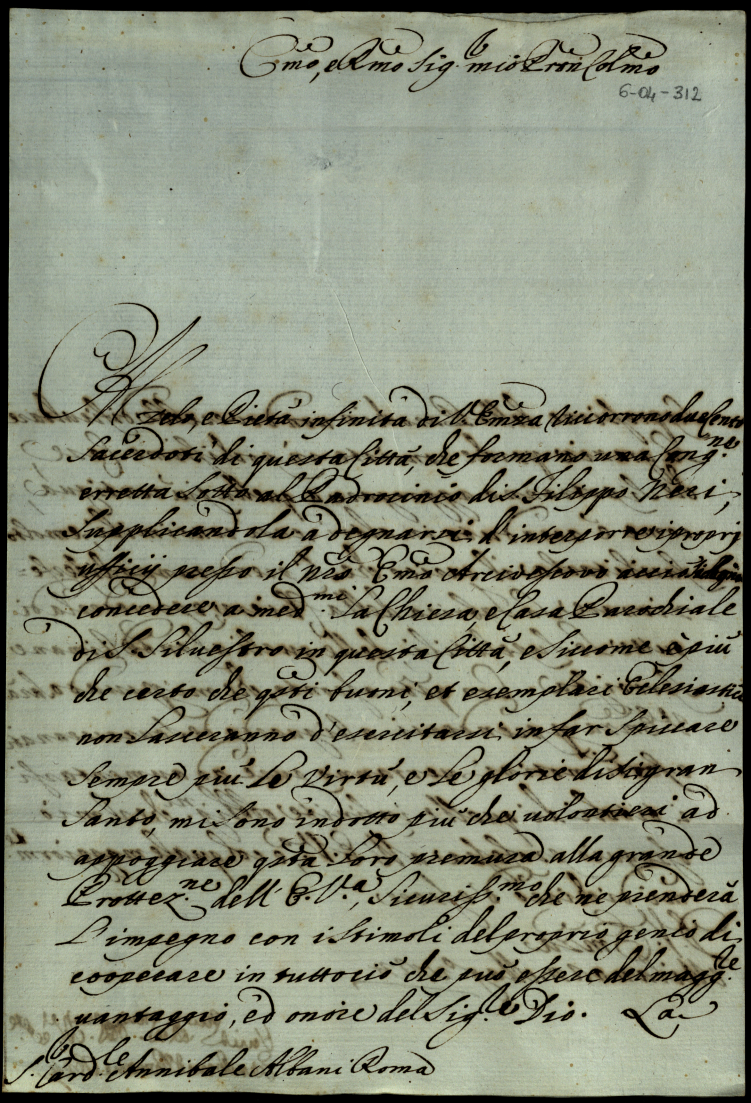 Emo, e Rmo Sig.r mio Pron Colmo
6-04-312
Al zelo, e Pietà infinita di V. Emza riccorrono due Cento
Sacerdoti di questa Città, che formano una Cong.ne
erretta sotto al Padrocinio di S. Filippo Neri,
supplicandola à degnarsi d'interporre i proprj
ufficij presso il nro Emo Arcivescovo acciò
concedere a med.mi la Chiesa, e Casa Parochiale
di S. Silvestro in questa Città, e siccome è più
che certo che qsti buoni, et esemplari Eclesiastici
non lasceranno d'esercitarsi in far spiccare
sempre più le virtù, e le glorie di sì gran
Santo, mi sono indotto più che volontieri ad
appoggiare qsta loro premura alla grande
Prottez.ne dell'E. V.a, sicuriss.mo che ne prenderà
l'impegno con i stimoli del proprio genio di
cooperare in tuttociò che può essere del magg.re
vantaggio, ed onore del Sig.re Dio. La
S.r Card.le Annibale Albani Roma